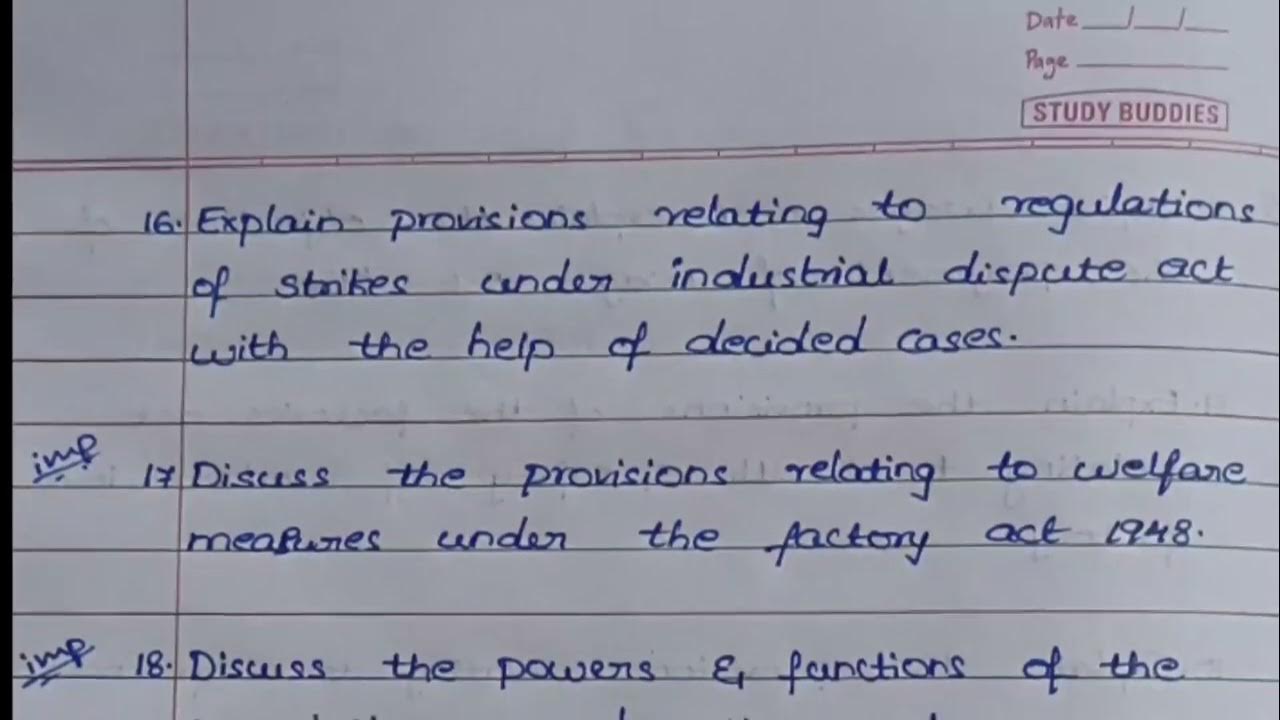 Date __/__/__
Page
STUDY BUDDIES
16. Explain provisions relating to regulations
of strikes under industrial dispute act
with the help of decided cases.
imp
17 Discuss the provisions relating to welfare
measures under the factory act 1948.
imp
18. Discuss the powers & functions of the